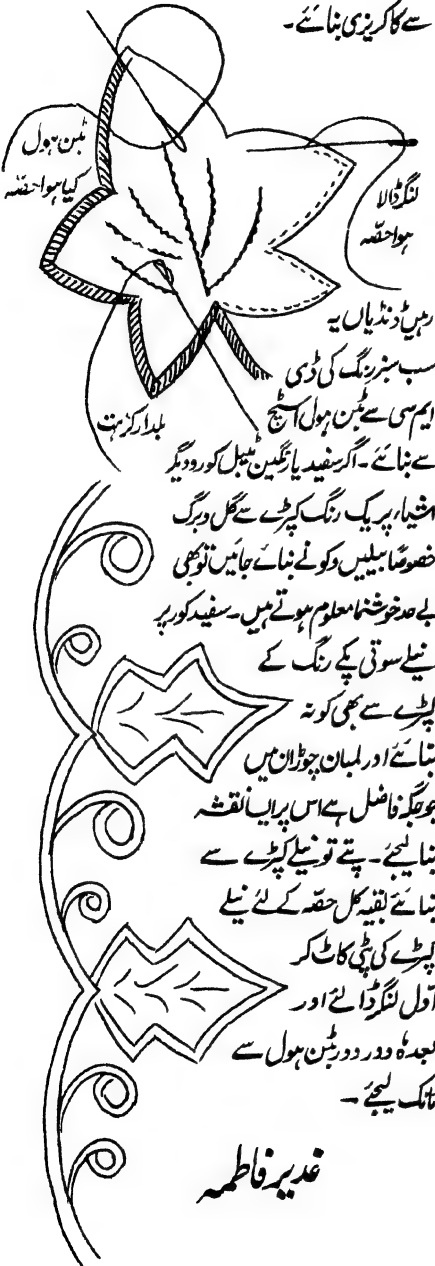 سے کاکریزی بنائے۔
بٹن ہول
کیا ہوا حصّہ
لنگر ڈالا
ہوا حصّہ
رہیں ڈنڈیاں یہ
سب سبز رنگ کی ڈی
ایم سی سے بٹن ہول اسٹیچ
بلدار کڑہت
سے بنائے۔ اگر سفید یا رنگین ٹیبل کور و دیگر
اشیاء پر یک رنگ کپڑے سے گل و برگ
خصوصاً بیلیں و کونے بنائے جائیں تو بھی
بے حد خوشنما معلوم ہوتے ہیں۔ سفید کور پر
نیلے سوتی پکے رنگ کے
کپڑے سے بھی کونہ
بنائے اور لمبان چوڑان میں
جو جگہ فاضل ہے اس پر ایسا نقشہ
بنا لیجئے۔ پتے تو نیلے کپڑے سے
بنائے بقیہ کل حصّہ کے لئے نیلے
کپڑے کی پٹی کاٹ کر
اوّل لنگر ڈالئے اور
بعدہٗ دور دور بٹن ہول سے
ٹانک لیجئے۔
غدیر فاطمہ